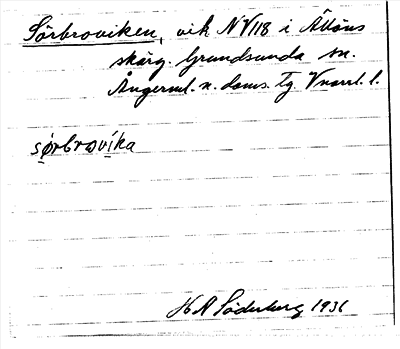 Sörbroviken, vik NV118 i Ålöns
skärg. Grundsunda sn.
Ångerml. n. doms. Tg. Vnorrl. l.
sørbrovika
H A Söderberg 1931